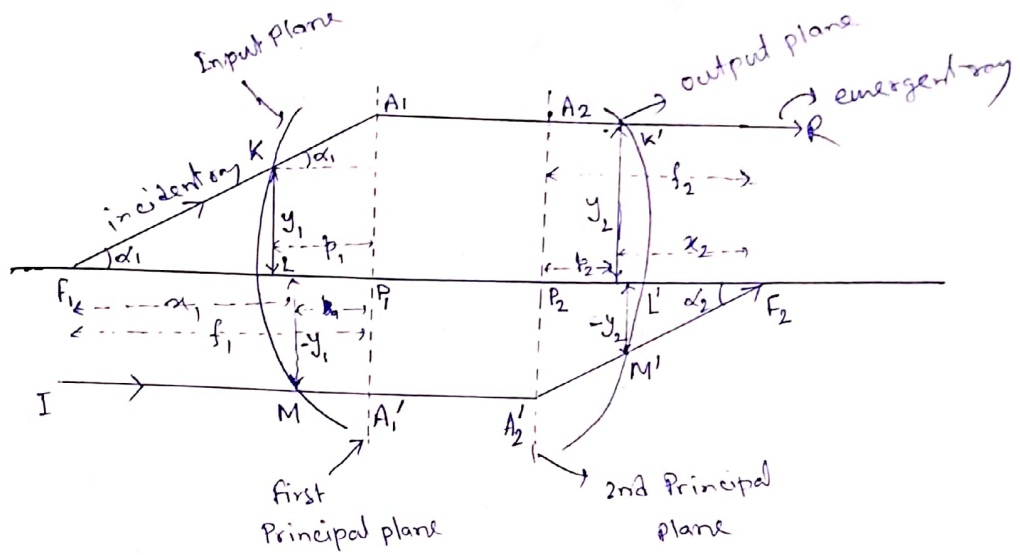 Input Plane
output plane
emergent ray
A1
A2
K
α1
K'
R
incident ray
f2
y1
y2
α1
p1
x2
L
p2
F1
x1
P1
P2
L'
α2
F2
f1
-y1
-y2
M'
I
M
A1'
A2'
first
Principal plane
2nd Principal
plane